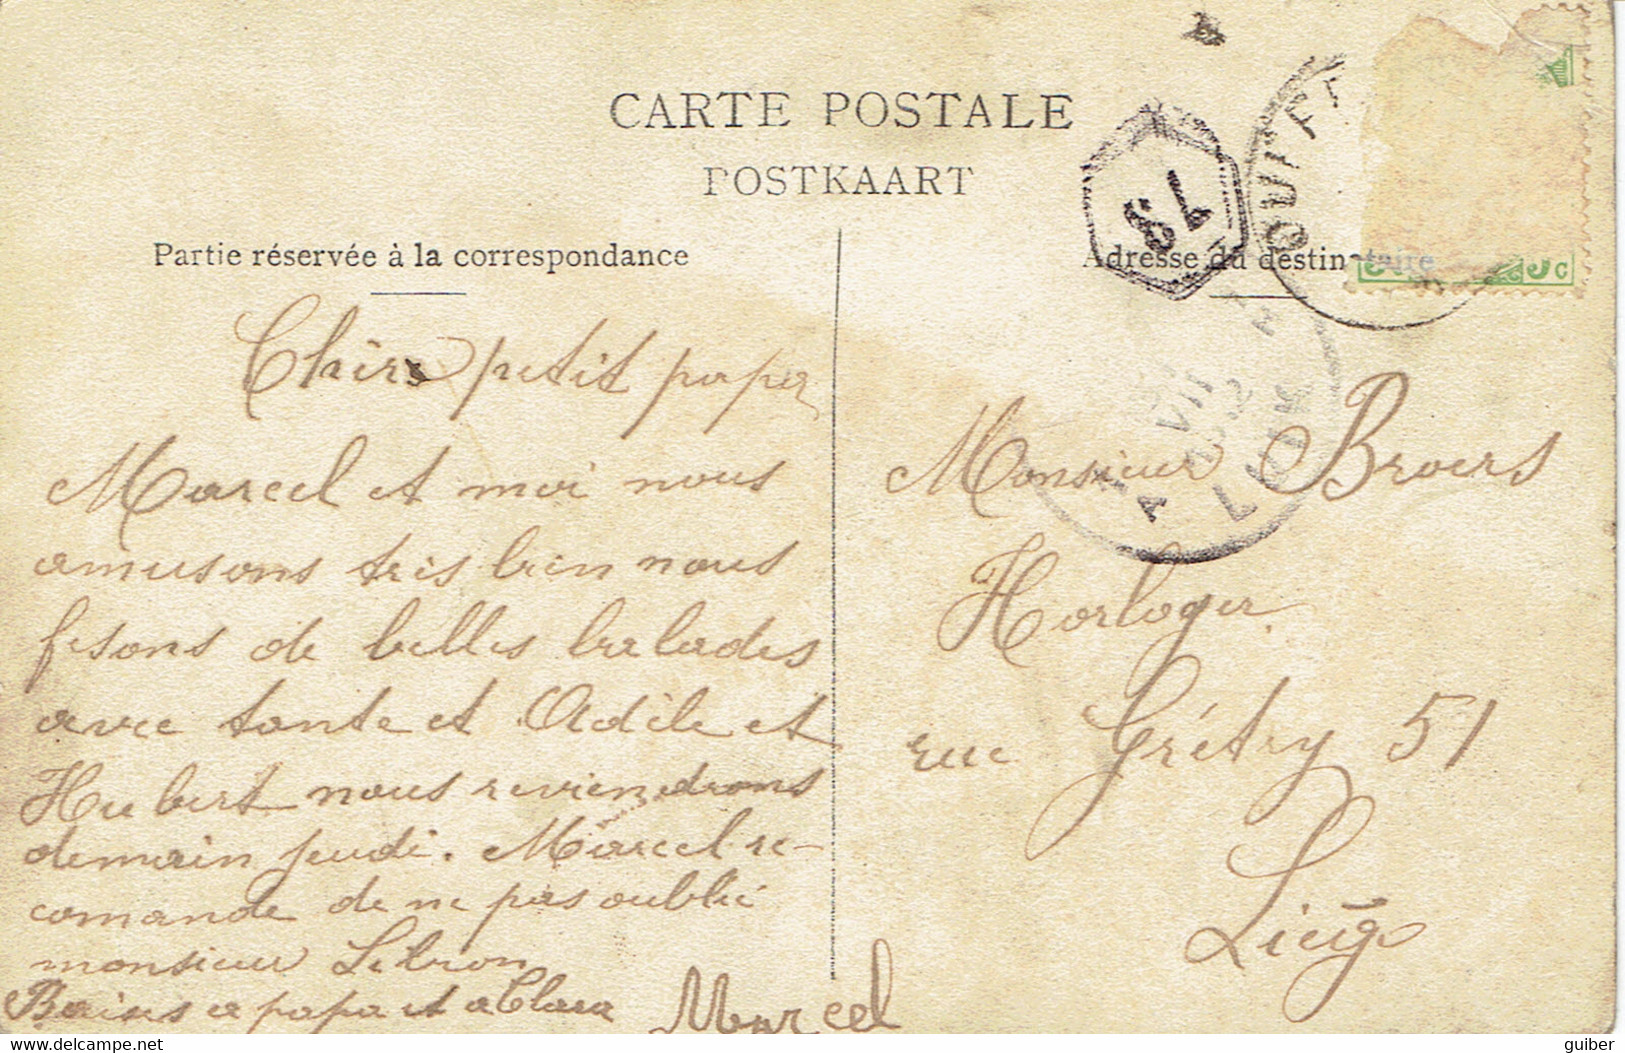 CARTE POSTALE
POSTKAART
Partie réservée à la correspondance
Adresse du destinataire
78
5 c
VII
A
Chers petit papa
Marcel et moi nous
amusons tres bien nous
fesons de belles balades
avec tante et Adèle et
Hubert nous reviendrons
demain jeudi. Marcel re-
comande de ne pas oublié
monsieur Lebron
Baises a papa et a Clara
Marcel
Monsieur Broers
Horloger
rue Grétry 51
Liége
guiber
delcampe.net